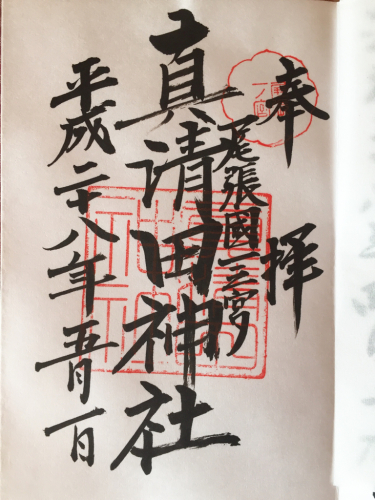 奉拝
尾張國一之宮
真清田神社
平成二十八年五月一日